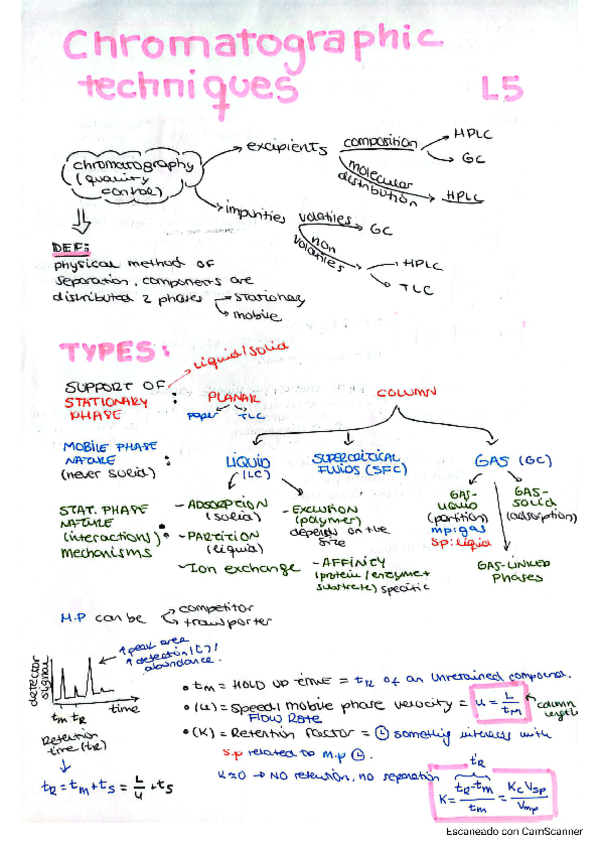 Chromatographic
techniques L5
chromatography
(quality
control)
excipients composition HPLC
GC
molecular
distribution HPLC
impurities volatiles GC
non
volatiles HPLC
TLC
DEF:
physical method of
separation, components are
distributed 2 phases stationary
mobile
TYPES:
liquid/solid
SUPPORT OF
STATIONARY
PHASE : PLANAR COLUMN
paper TLC
MOBILE PHASE
NATURE :
(never solid)
LIQUID
(LC)
SUPERCRITICAL
FLUIDS (SFC)
GAS (GC)
STAT. PHASE
NATURE
(interactions) :
mechanisms
- ADSORPTION
(solid)
- PARTITION
(liquid)
- Ion exchange
- EXCLUSION
(polymer)
depends on the
size
- AFFINITY
(protein/enzyme+
substrate) specific
GAS-
LIQUID
(partition)
mp: gas
sp: liquid
GAS-
SOLID
(adsorption)
GAS-LINKED
PHASES
M.P can be competitor
transporter
detector
signal
tm tR time
↑ peak area
↑ detection/[ ]/
abundance.
Retention
time (tR)
tR = tm + ts = L/u + ts
• tm = HOLD UP time = tR of an unretained compound.
• (u) = Speed/mobile phase velocity = u = L/tM column
length
Flow Rate
• (K) = Retention factor = something interacts with
s.p related to m.p
K≈0 → No retention, no separation
tR
K = tR-tm/tm = Kc Vsp/Vmp
Escaneado con CamScanner